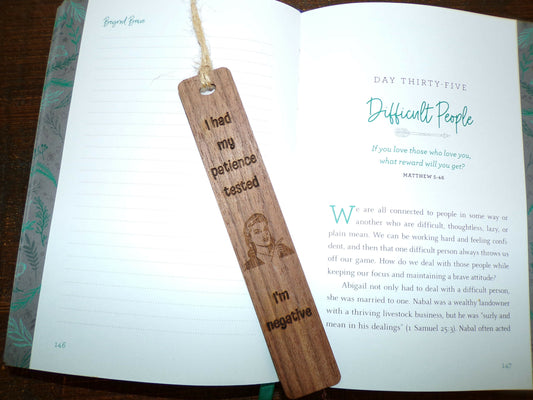 Beyond Brave
146
I had
my
patience
tested
I'm
negative
DAY THIRTY-FIVE
Difficult People
If you love those who love you,
what reward will you get?
MATTHEW 5:46
We are all connected to people in some way or
another who are difficult, thoughtless, lazy, or
plain mean. We can be working hard and feeling confi-
dent, and then that one difficult person always throws us
off our game. How do we deal with those people while
keeping our focus and maintaining a brave attitude?
Abigail not only had to deal with a difficult person,
she was married to one. Nabal was a wealthy landowner
with a thriving livestock business, but he was "surly and
mean in his dealings" (1 Samuel 25:3). Nabal often acted
147